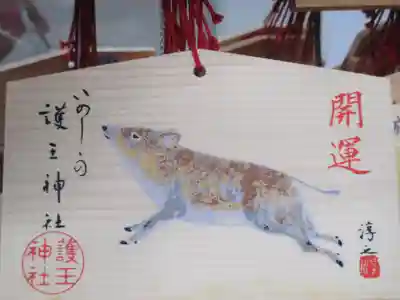 開運
淳之
いのしゝの
護王神社
護王
神社